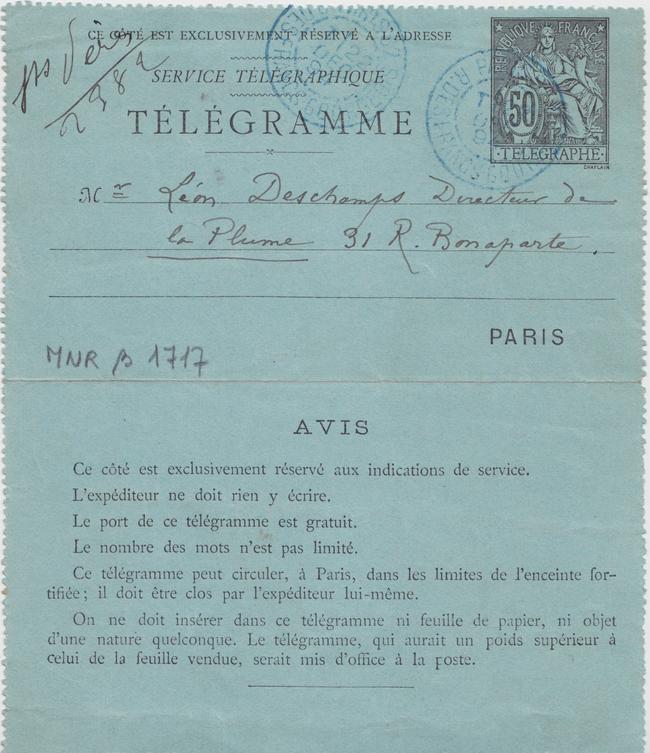 CE CÔTÉ EST EXCLUSIVEMENT RÉSERVÉ A L'ADRESSE
SERVICE TÉLÉGRAPHIQUE
TÉLÉGRAMME
RÉPUBLIQUE FRANÇAISE
50
TELEGRAPHE
CHAPLAIN
Mr Léon Deschamps Directeur de
la Plume 31 R. Bonaparte.
PARIS
MNR β 1717
AVIS
Ce côté est exclusivement réservé aux indications de service.
L'expéditeur ne doit rien y écrire.
Le port de ce télégramme est gratuit.
Le nombre des mots n'est pas limité.
Ce télégramme peut circuler, à Paris, dans les limites de l'enceinte for-
tifiée; il doit être clos par l'expéditeur lui-même.
On ne doit insérer dans ce télégramme ni feuille de papier, ni objet
d'une nature quelconque. Le télégramme, qui aurait un poids supérieur à
celui de la feuille vendue, serait mis d'office à la poste.